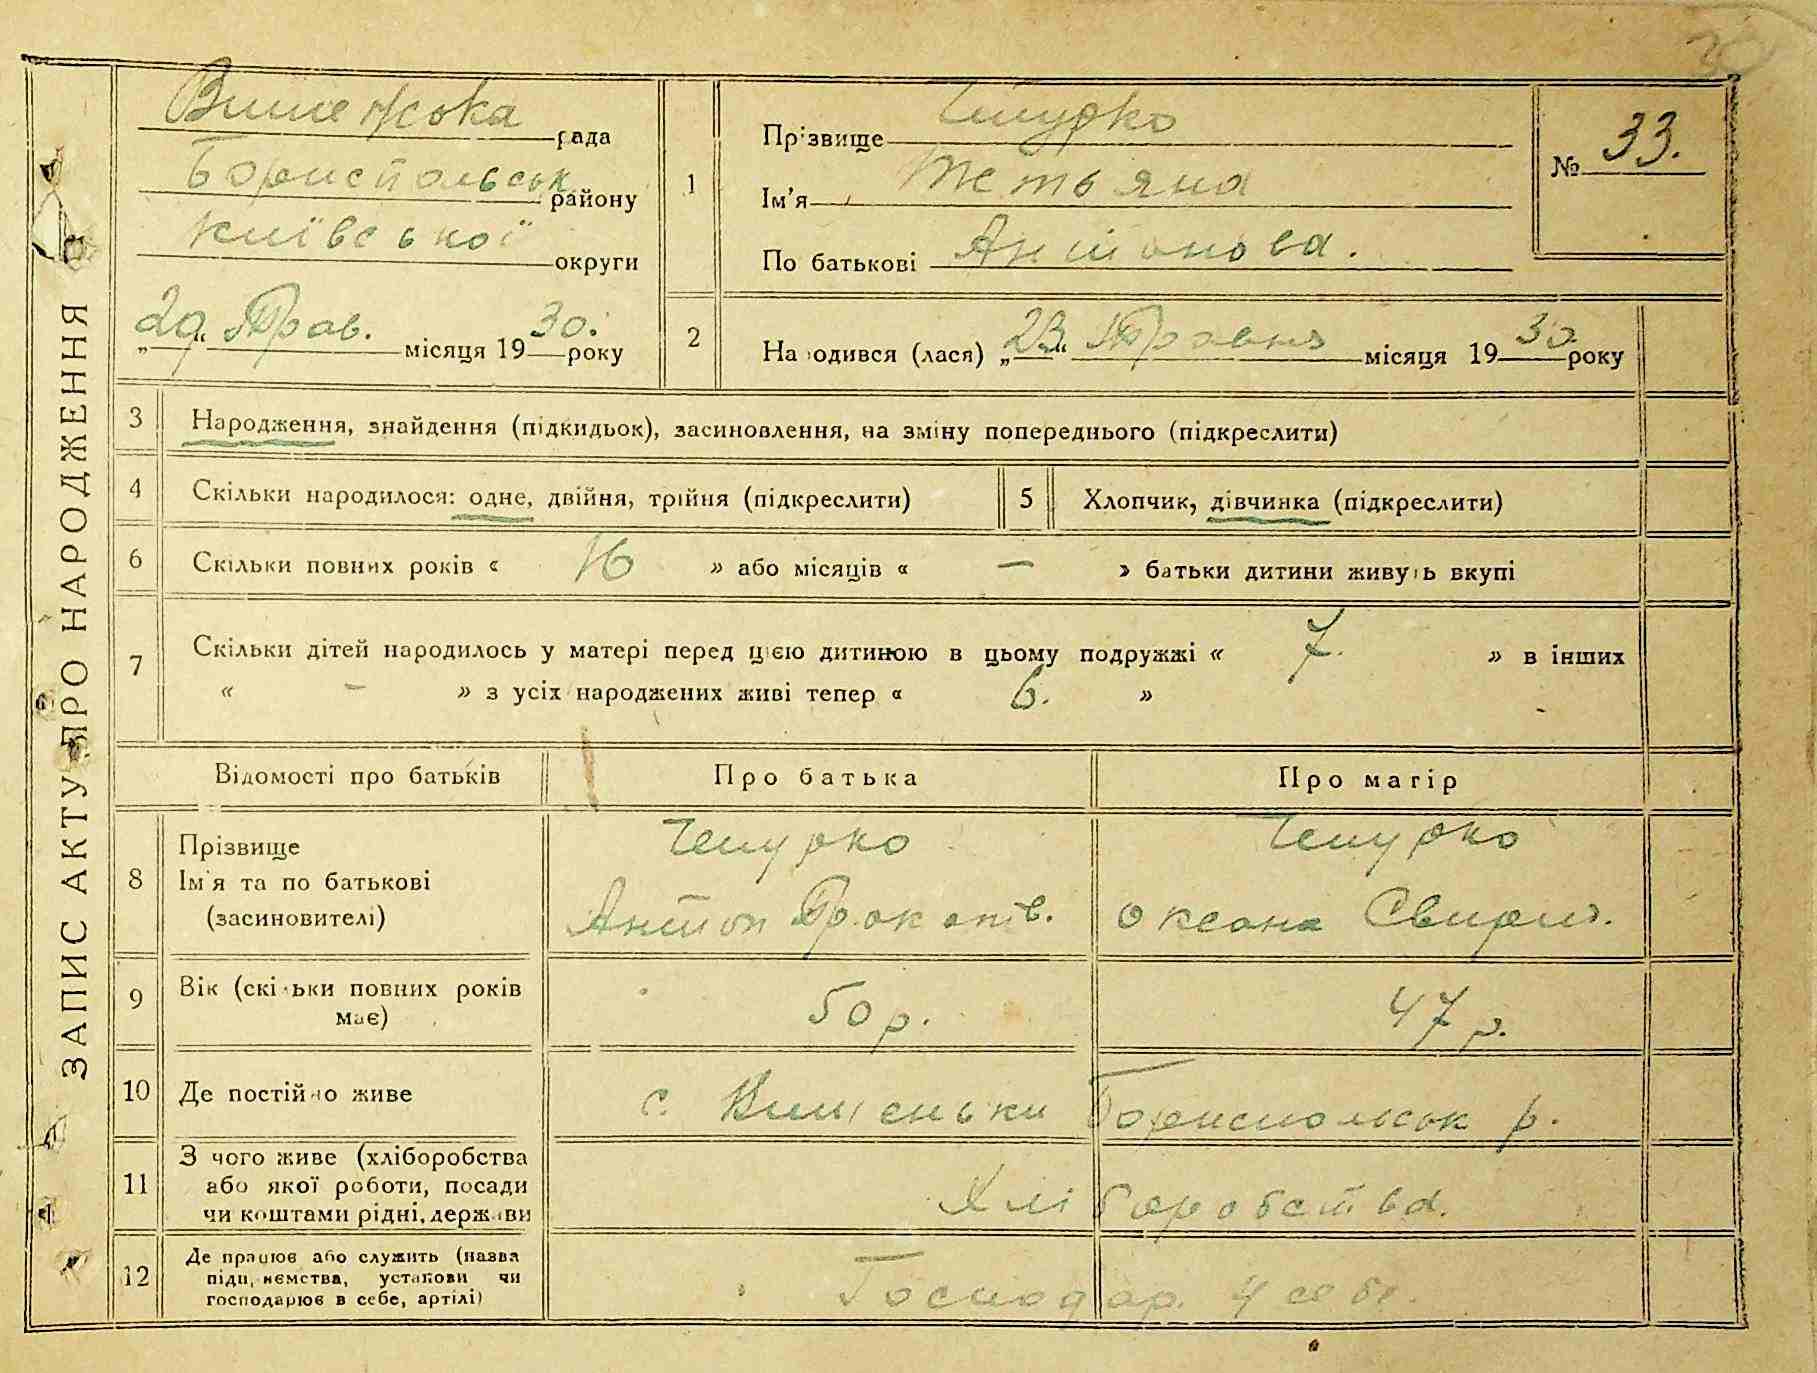 ЗАПИС АКТУ ПРО НАРОДЖЕННЯ
рада
Бориспольськ району
Київської округи
"29" Трав. місяця 1930. року
1
Прізвище Чепурко
Ім'я Тетьяна
По батькові Антонова.
№ 33.
2
Народився (лася) "23" Травня місяця 1930 року
3 Народження, знайдення (підкидьок), засиновлення, на зміну попереднього (підкреслити)
4 Скільки народилося: одне, двійня, трійня (підкреслити)
5 Хлопчик, дівчинка (підкреслити)
6 Скільки повних років « 16 » або місяців « — » батьки дитини живуть вкупі
7 Скільки дітей народилось у матері перед цією дитиною в цьому подружжі « 7. » в інших
« – » з усіх народжених живі тепер « 6. »
Відомості про батьків Про батька Про матір
8 Прізвище Чепурко Чепурко
Ім'я та по батькові
(засиновителі) Антон Прокопів. Оксана Свирид.
9 Вік (скільки повних років
має) 50 р. 47 р.
10 Де постійно живе с. Вишеньки Бориспольськ р.
11 З чого живе (хліборобства
або якої роботи, посади
чи коштами рідні, держави Хліборобства.
12 Де працює або служить (назва
підприємства, установи чи
господарює в себе, артілі) Господар. у себе.